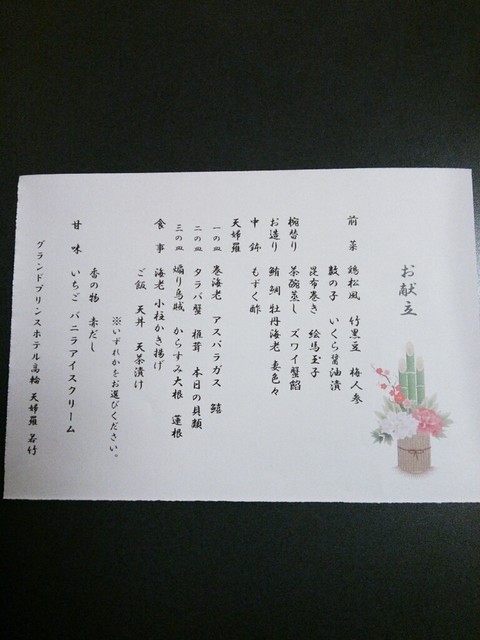 お献立
前菜 鶏松風 竹黒豆 梅人参
数の子 いくら醤油漬
昆布巻き 絵馬玉子
椀替り 茶碗蒸し ズワイ蟹餡
お造り 鮪 鯛 牡丹海老 妻色々
中鉢 もずく酢
天婦羅
一の皿 巻海老 アスパラガス 鱚
二の皿 タラバ蟹 椎茸 本日の貝類
三の皿 煽り烏賊 からすみ大根 蓮根
食事 海老 小柱かき揚げ
ご飯 天丼 天茶漬け
※いずれかをお選びください。
香の物 赤だし
甘味 いちご バニラアイスクリーム
グランドプリンスホテル高輪 天婦羅 若竹